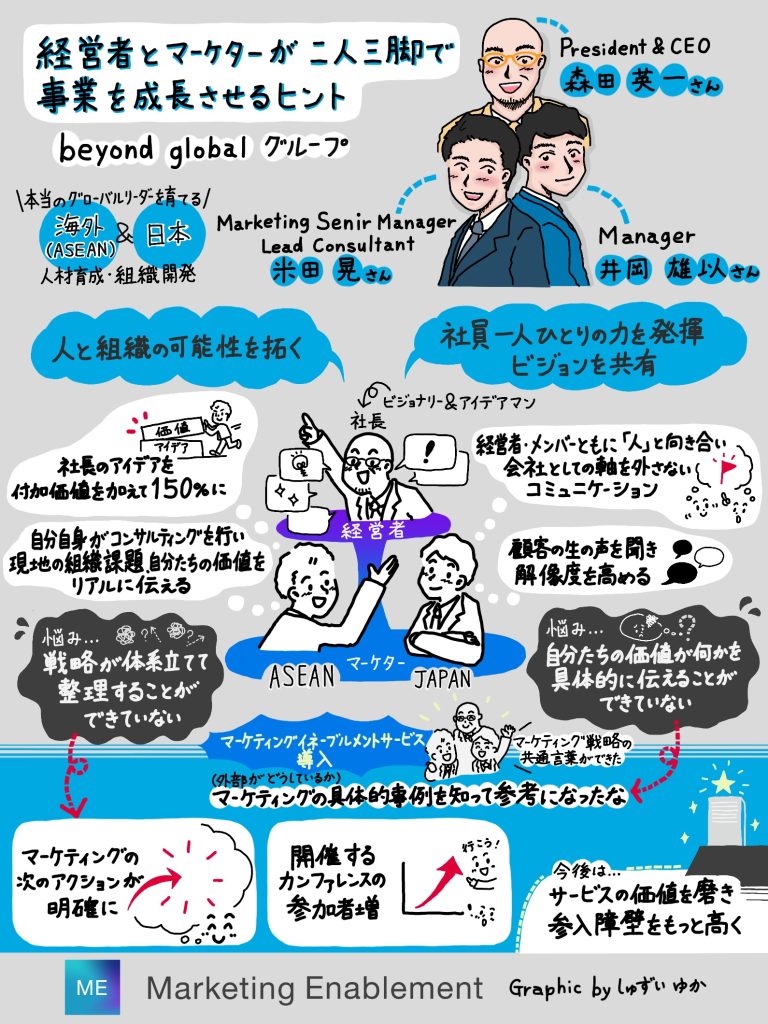 経営者とマーケターが二人三脚で
事業を成長させるヒント
beyond global グループ
President & CEO
森田 英一さん
\本当のグローバルリーダーを育てる/
海外
(ASEAN)
&
日本
人材育成・組織開発
Marketing Senir Manager
Lead Consultant
米田 晃さん
Manager
井岡 雄以さん
人と組織の可能性を拓く
社員一人ひとりの力を発揮
ビジョンを共有
ビジョナリー&アイデアマン
社長
価値
アイデア
社長のアイデアを
付加価値を加えて150%に
!
経営者・メンバーともに「人」と向き合い
会社としての軸を外さない
コミュニケーション
経営者
自分自身がコンサルティングを行い
現地の組織課題、自分たちの価値を
リアルに伝える
顧客の生の声を聞き
解像度を高める
悩み…
戦略が体系立てて
整理することが
できていない
マーケター
ASEAN
JAPAN
悩み…
自分たちの価値が何かを
具体的に伝えることが
できていない
マーケティングイネーブルメントサービス
導入
マーケティング戦略の
共通言葉ができた
(外部がどうしているか)
マーケティングの具体的事例を知って参考になったな
マーケティングの
次のアクションが
明確に
開催する
カンファレンスの
参加者増
行こう!
今後は…
サービスの価値を磨き
参入障壁をもっと高く
ME
Marketing Enablement
Graphic by しゅずい ゆか